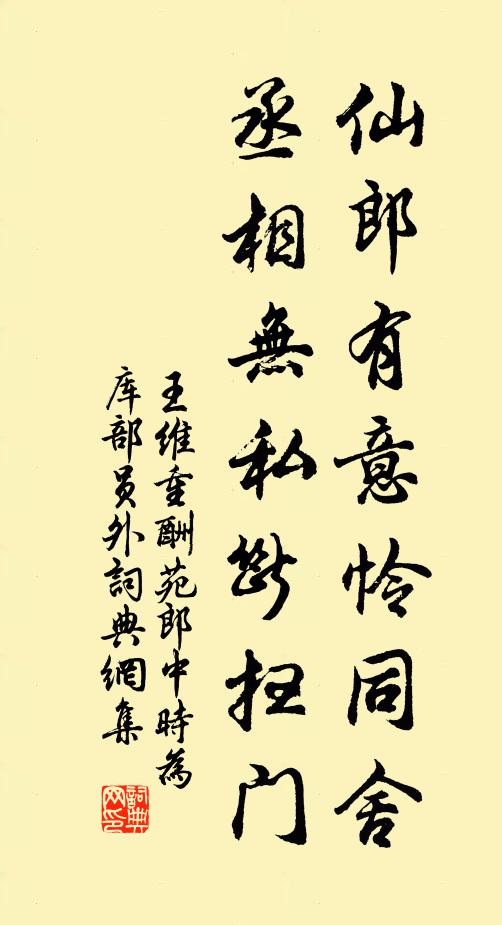 仙郎有意怜同舍
丞相無私断扫门
王维重酬苑郎中時為
库部员外詞典網集
詞典
网印